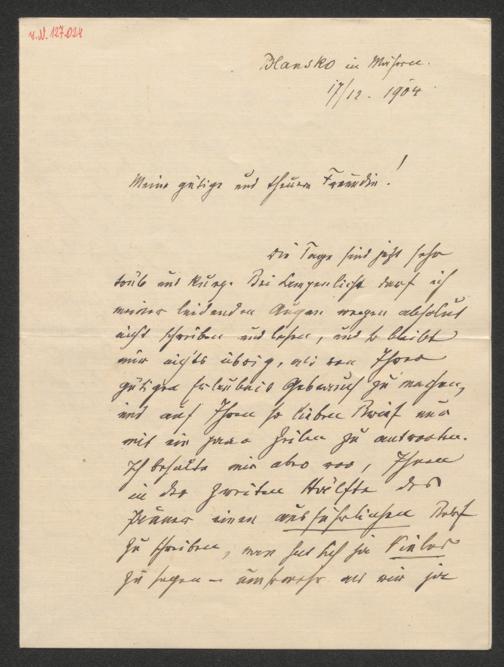 H.I.N. 127.024
Blansko in Mähren.
17/12. 1904.
Meine gütige und theuere Freundin!
Die Tage sind jetzt sehr
trüb und kurz. Bei Lampenlicht darf ich
meiner leidenden Augen wegen absolut
nicht schreiben und lesen, und so bleibt
mir nichts übrig, als von Ihrer
gütigen Erlaubnis Gebrauch zu machen,
und auf Ihren so lieben Brief nur
mit ein paar Zeilen zu antworten.
Ich behalte mir aber vor, Ihnen
in der zweiten Hälfte des
Jänner einen ausführlichen Brief
zu schreiben, man hat sich ja Vieles
zu sagen – umsomehr als wir ja